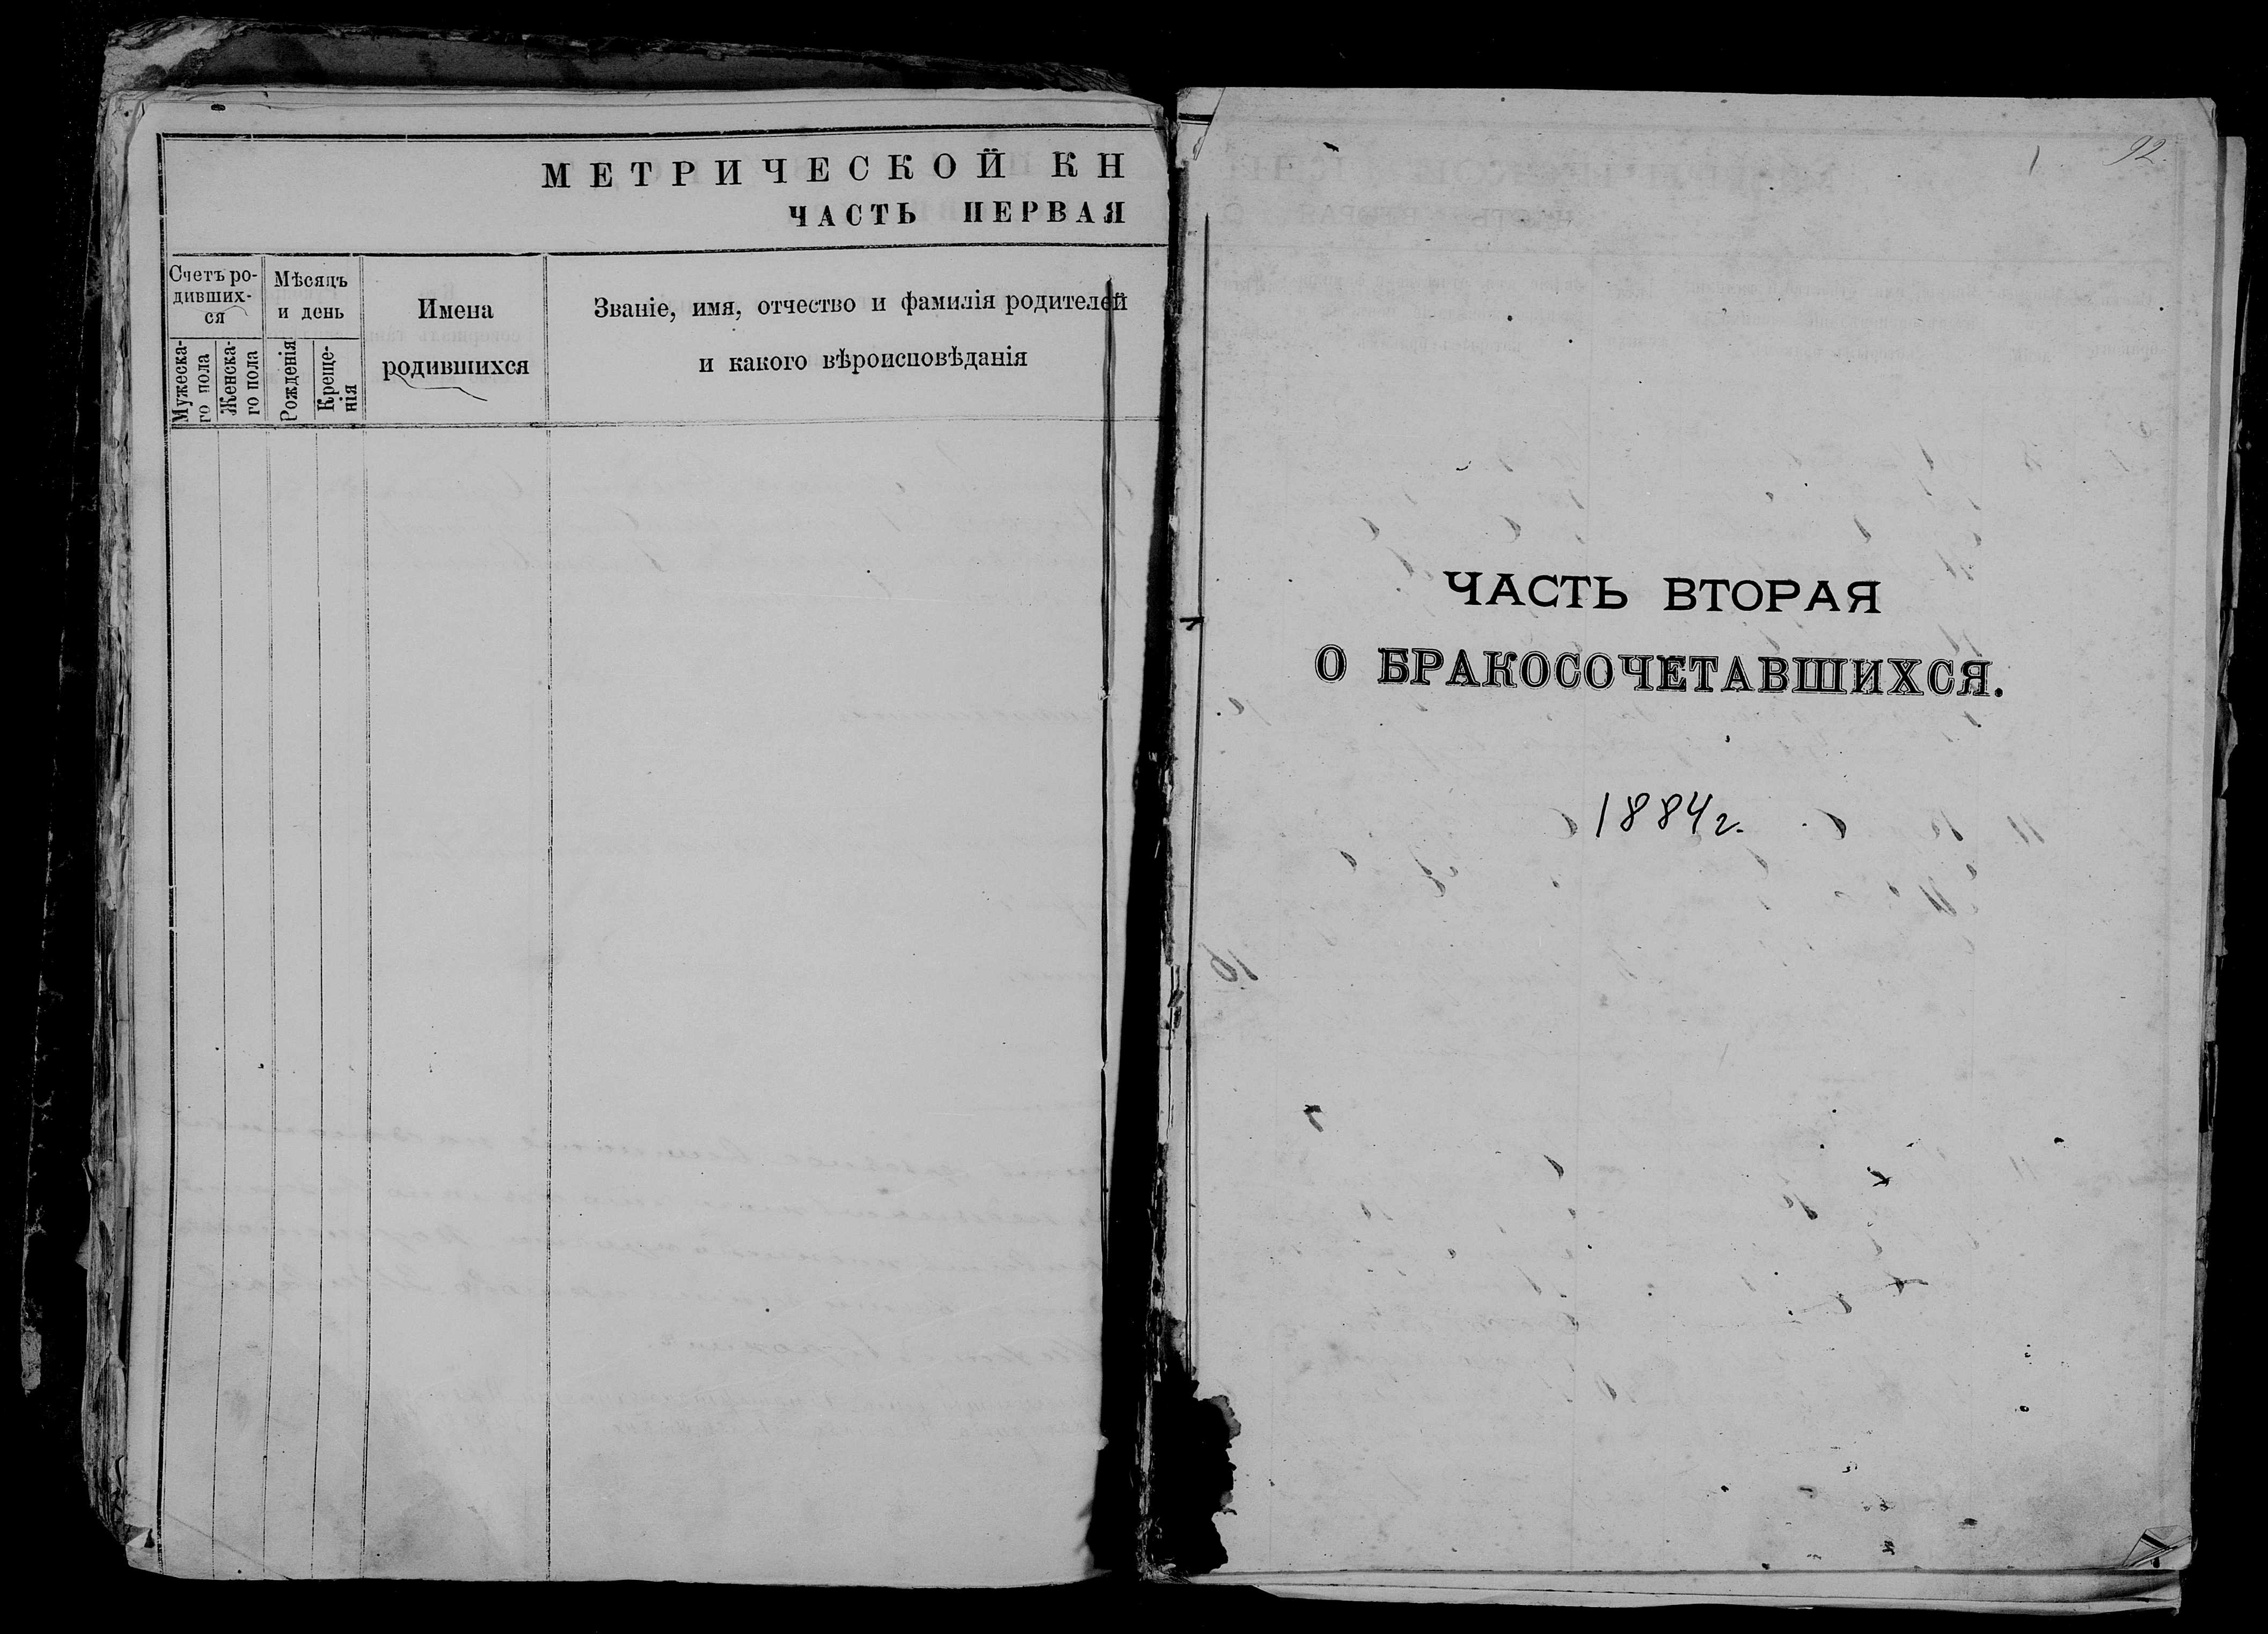 МЕТРИЧЕСКОЙ КН
ЧАСТЬ ПЕРВАЯ
Счетъ ро-
дивших-
ся
Мужеска-
го пола
Женска-
го пола
Мѣсяцъ
и день
Рожденія
Креще-
нія
Имена
родившихся
Званіе, имя, отчество и фамилія родителей
и какого вѣроисповѣданія
92.
ЧАСТЬ ВТОРАЯ
О БРАКОСОЧЕТАВШИХСЯ.
1884 г.